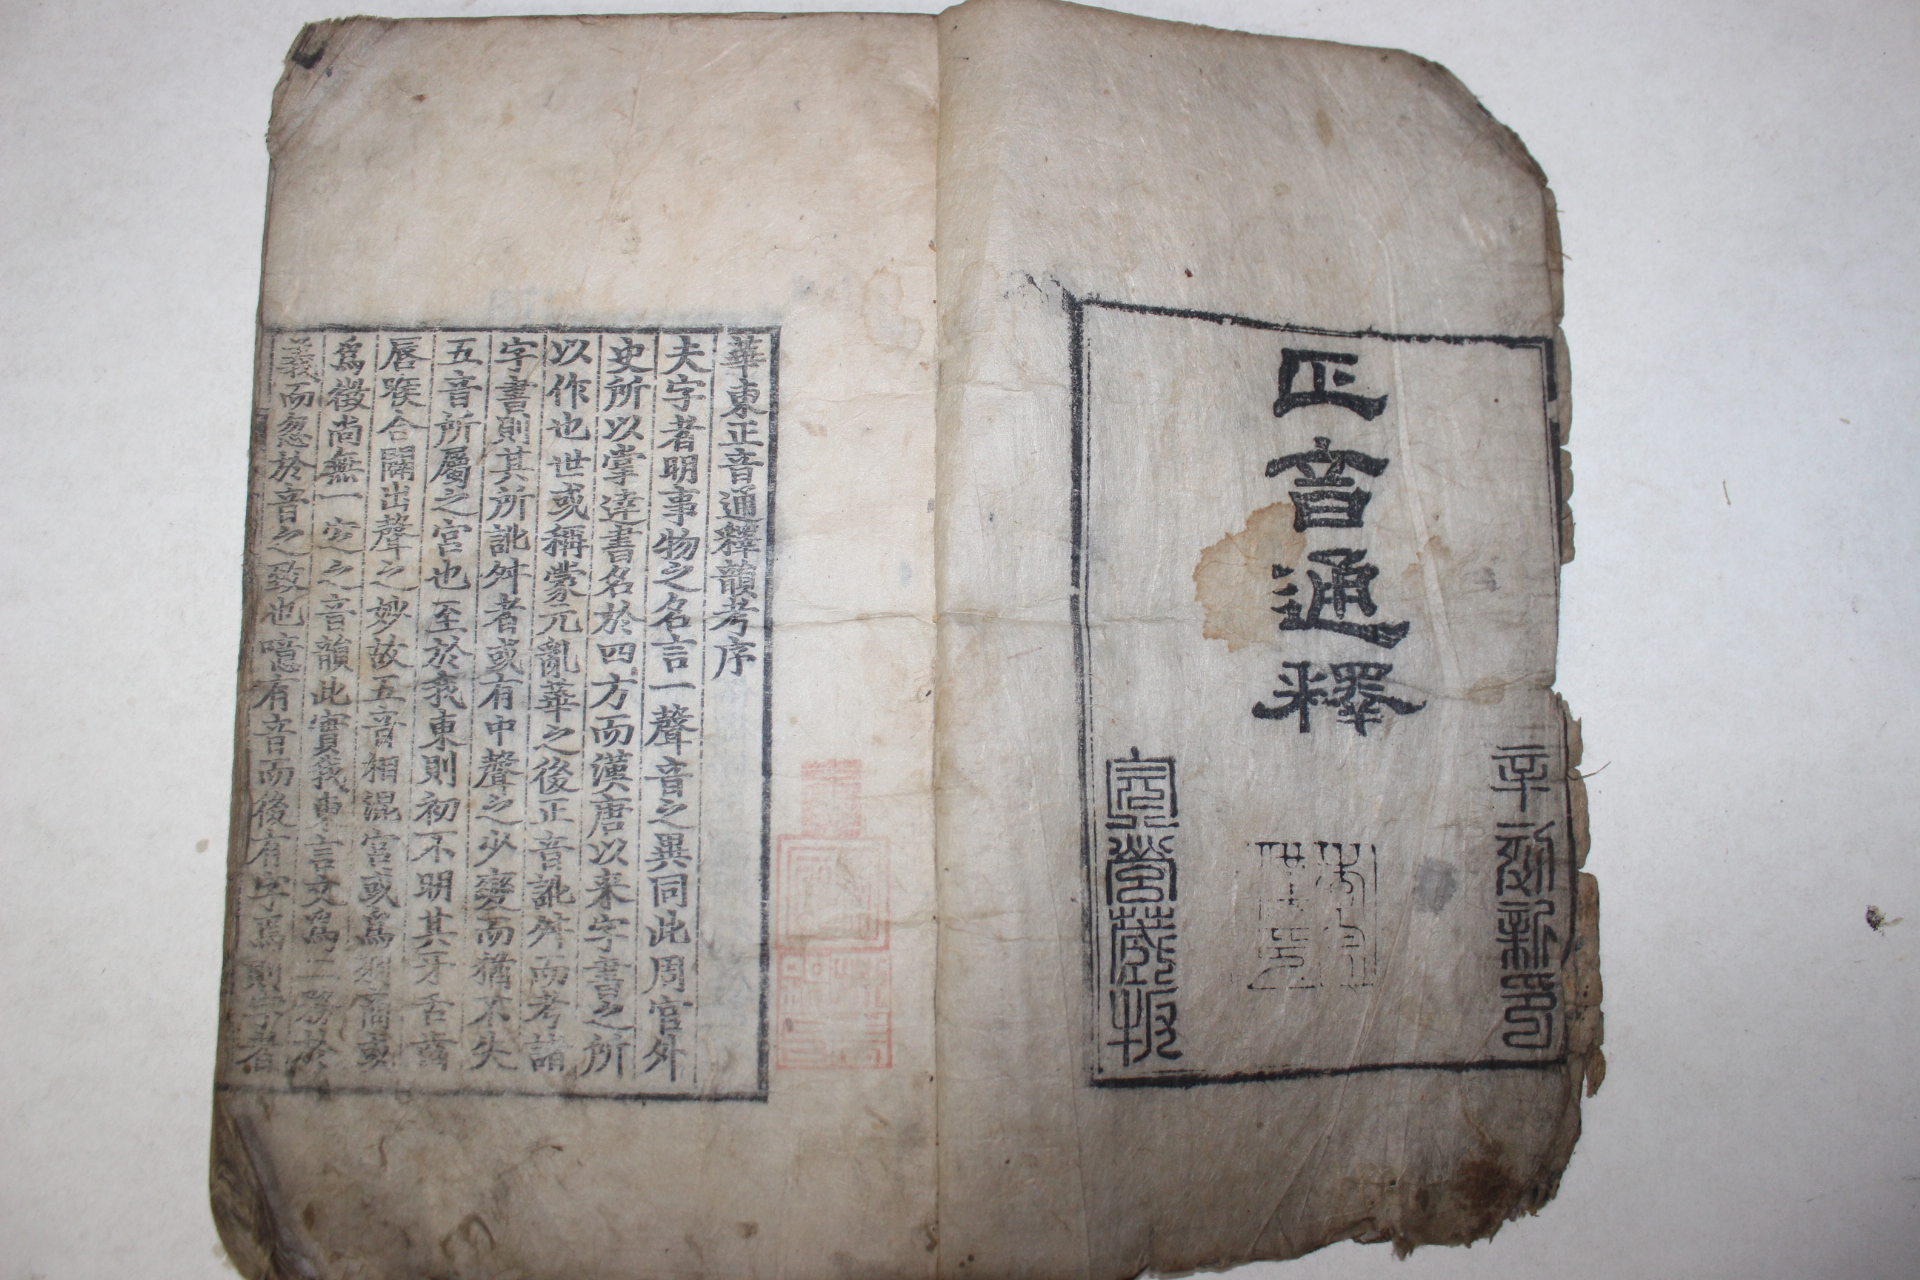 正音通釋
完營藏板
華東正音通釋韻考序
夫字者明事物之名言一聲音之異同此周官外
史所以掌達書名於四方而漢唐以来字書之所
以作也世或稱蒙元亂華之後正音訛舛而考諸
字書則其所訛舛者或有中聲之少變而猶不失
五音所屬之宮也至於我東則初不明其牙舌齒
唇喉合闢出聲之妙故五音相混宮或爲商或
爲徵尚無一定之音韻此實我東言文爲二務於
義而忽於音之致也噫有音而後有字焉則字者